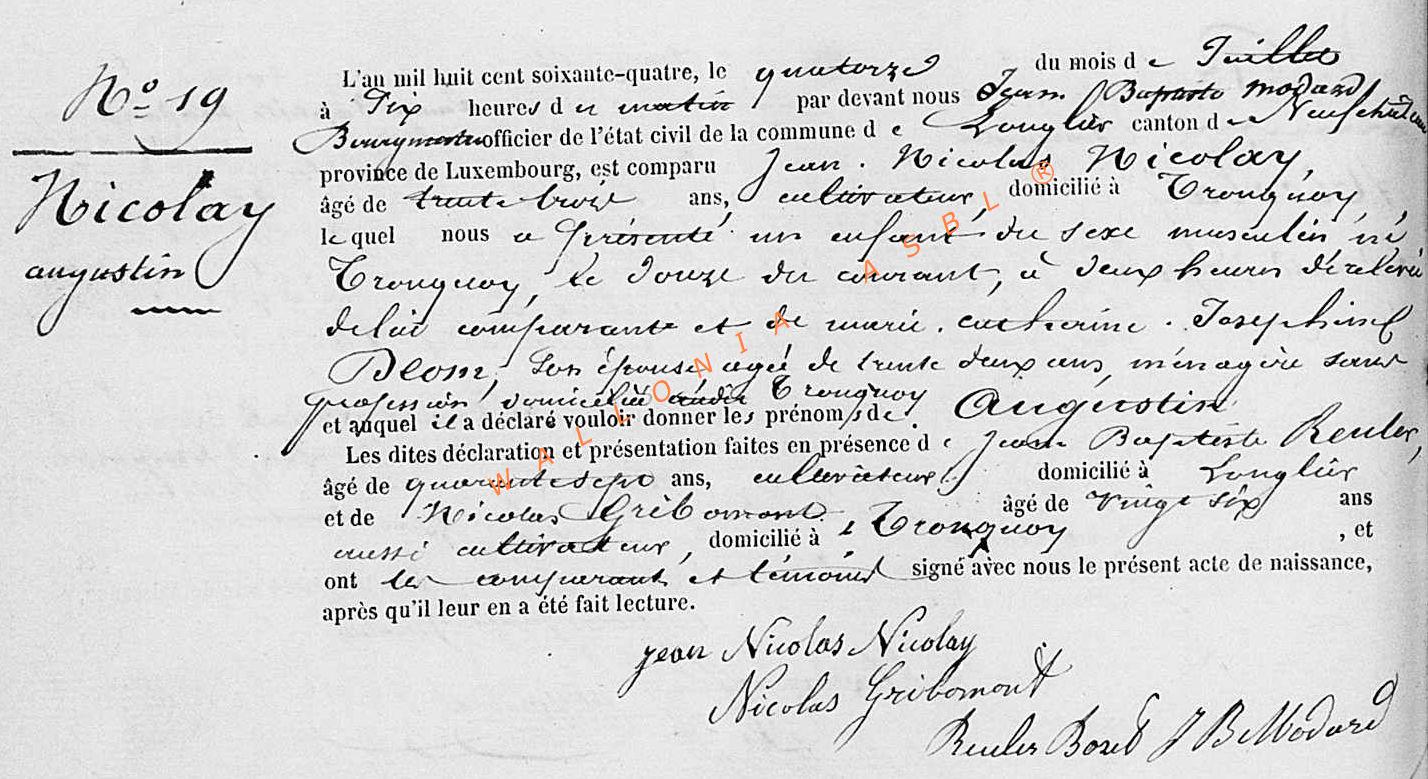 N° 19
Nicolay
augustin
L'an mil huit cent soixante-quatre, le quatorze du mois de Juillet
à Dix heures du matin par devant nous Jean Baptiste Modard
Bourgmestre officier de l'état civil de la commune de Longlier canton de Neufchâteau
province de Luxembourg, est comparu Jean Nicolas Nicolay
âgé de trente trois ans, cultivateur, domicilié à Tronquoy,
lequel nous a présenté un enfant du sexe masculin, né
Tronquoy, le Douze du courant, à deux heures de relevée
de lui comparant et de marie catherine Josephine
Deom, son épouse, agée de trente deux ans, ménagère sans
profession domiciliée audit Tronquoy
et auquel il a déclaré vouloir donner les prénoms de Augustin
Les dites déclaration et présentation faites en présence de Jean Baptiste Reuler,
âgé de quarante sept ans, cultivateur, domicilié à Longlier
et de Nicolas Gribomont âgé de vingt six ans
aussi cultivateur, domicilié à Tronquoy, et
ont les comparant et témoins signé avec nous le présent acte de naissance,
après qu'il leur en a été fait lecture.
jean Nicolas Nicolay
Nicolas Gribomont
Reuler J B Modard
WALLONIA ASBL ®